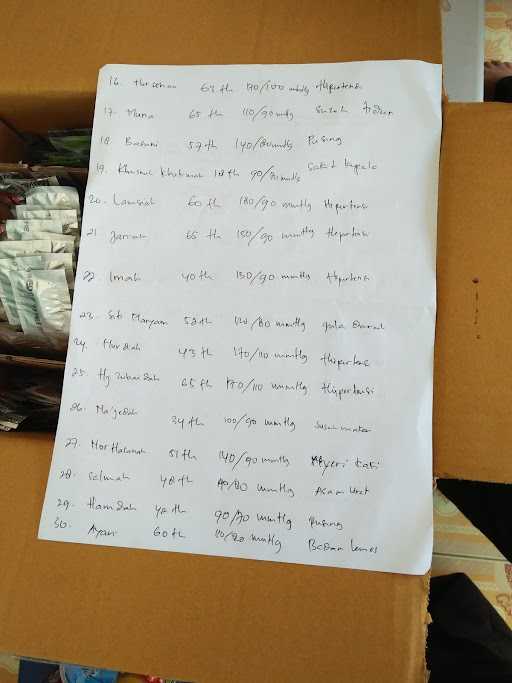 16. Hursenah 63 th 170/100 mmHg Hipertensi
17. Muna 65 th 110/90 mmHg Susah Tidur
18. Basuni 57 th 140/80 mmHg Pusing
19. Khusnul Khotimah 18 th 90/80 mmHg Sakit Kepala
20. Lamsiah 60 th 180/90 mmHg Hipertensi
21 Jannah 65 th 150/90 mmHg Hipertensi
22. Imah 40 th 150/90 mmHg Hipertensi
23. Siti Maryam 52 th 120/80 mmHg gula Darah
24. Nurdiah 43 th 170/110 mmHg Hipertensi
25. Hj Zubaidah 65 th 170/110 mmHg Hipertensi
26. Ma'jedah 34 th 100/90 mmHg Susah makan
27. Nor Hasanah 51 th 140/90 mmHg Nyeri kaki
28. Selmah 48 th 90/80 mmHg Asam Urat
29. Hamdah 40 th 90/70 mmHg Pusing
30. Ayani 60 th 110/80 mmHg Badan lemas